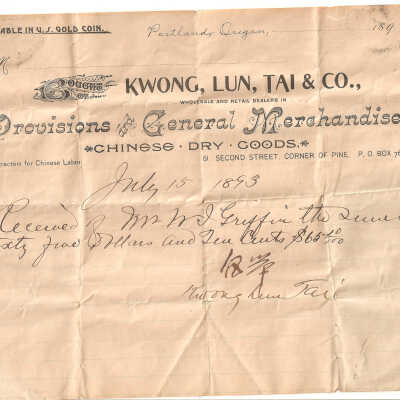 ABLE IN U.S. GOLD COIN.
Portland, Oregon, 189
M
BOUGHT OF
KWONG, LUN, TAI & CO.,
WHOLESALE AND RETAIL DEALERS IN
Provisions and General Merchandise
CHINESE DRY GOODS.
ractors for Chinese Labor. 61 SECOND STREET, CORNER OF PINE, P. O. BOX 76
July 15 1893
Received of Mr W J Griffin the sum
ixty five Dollars and Ten Cents $65 10/100
Kwong Lun Tai